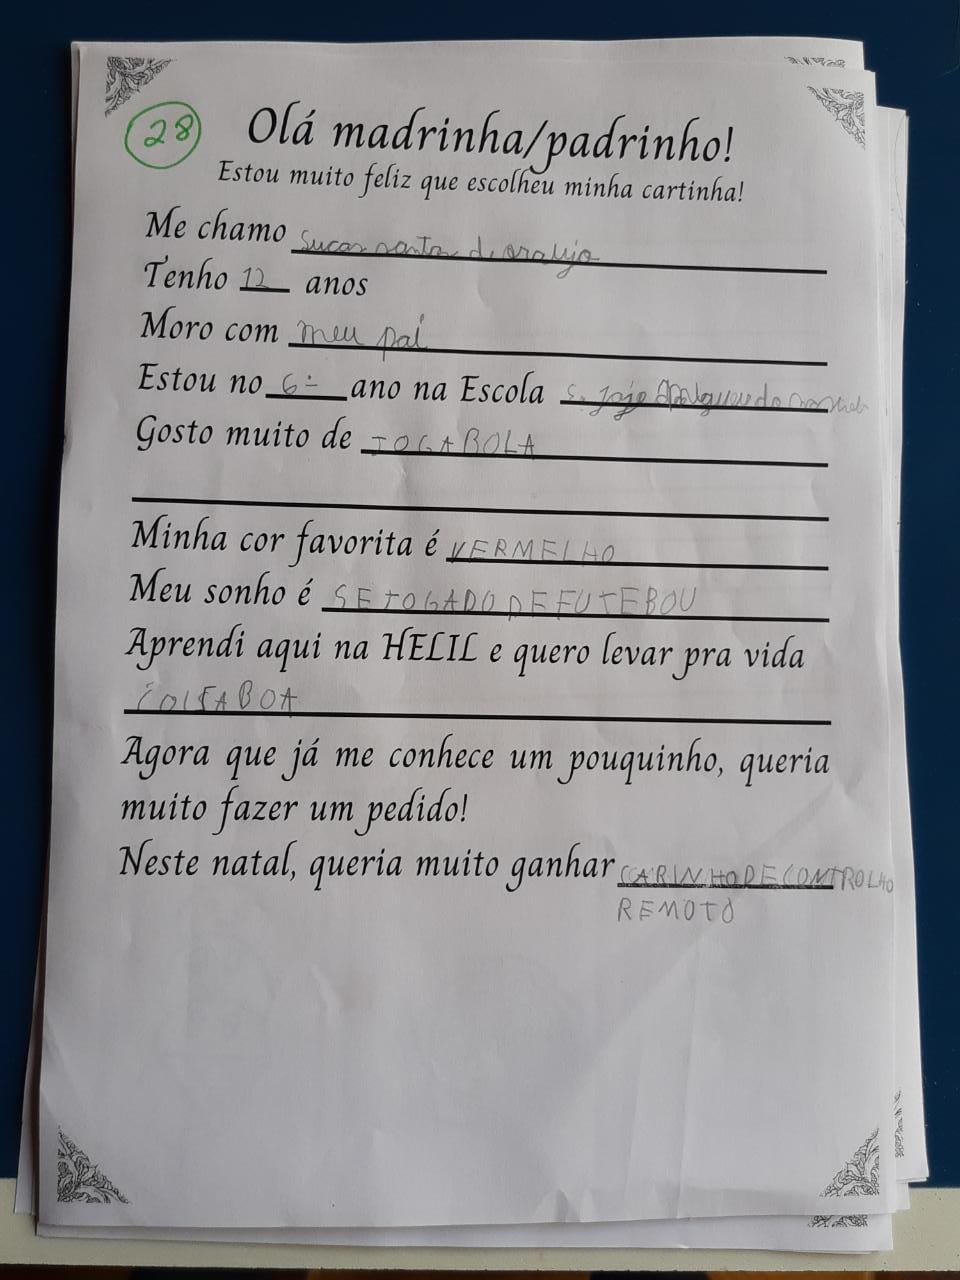 28
Olá madrinha/padrinho!
Estou muito feliz que escolheu minha cartinha!
Me chamo
Tenho 12 anos
Moro com meu pai
Estou no 6º ano na Escola
Gosto muito de JOGABOLA
Minha cor favorita é VERMELHO
Meu sonho é SEJOGADODEFUTEBOU
Aprendi aqui na HELIL e quero levar pra vida
COISABOA
Agora que já me conhece um pouquinho, queria
muito fazer um pedido!
Neste natal, queria muito ganhar CARINHODECONTROLHO
REMOTO